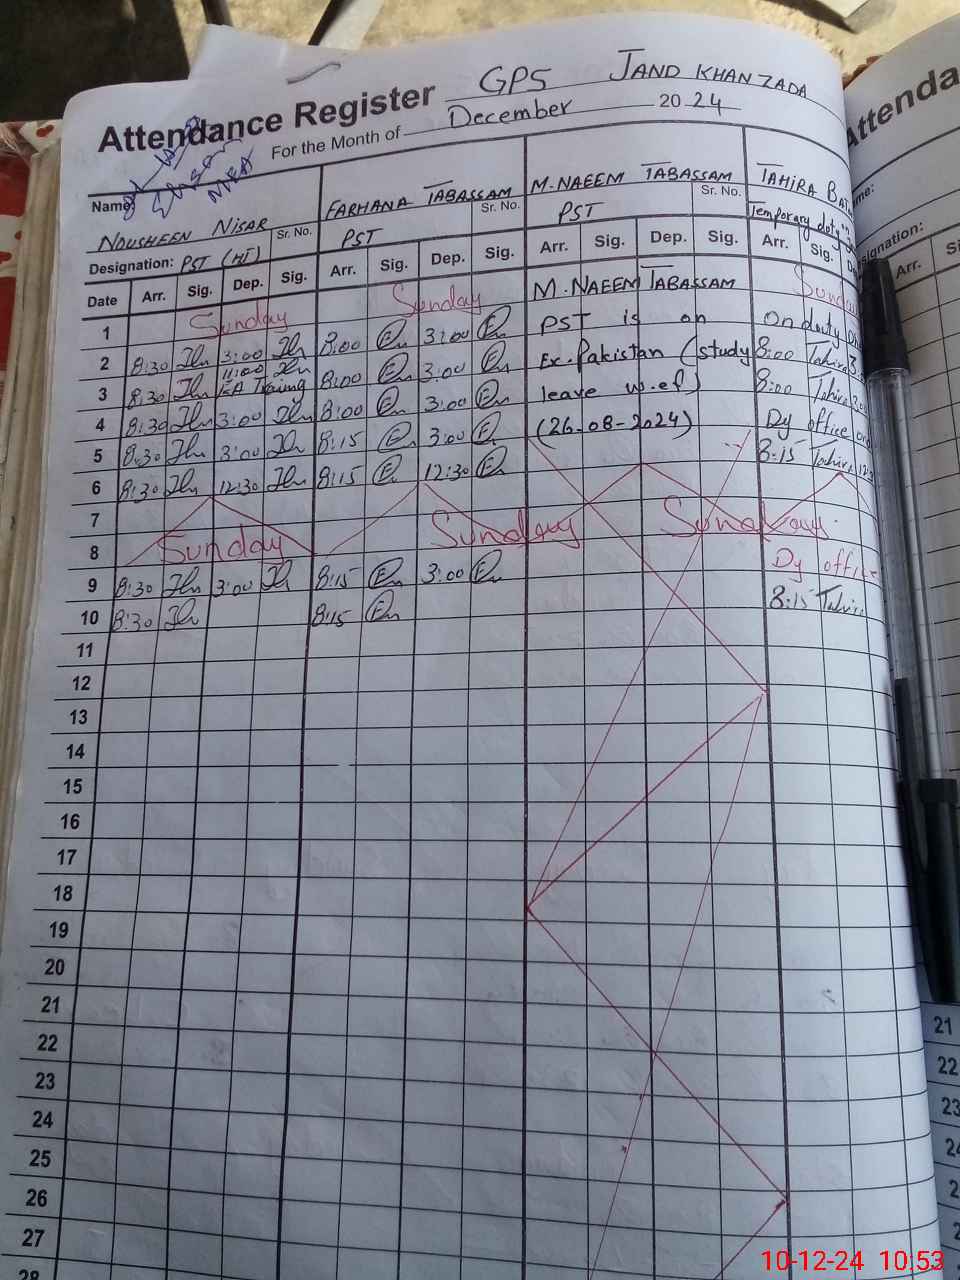 GPS JAND KHANZADA
Attendance Register
For the Month of December 2024
Attenda
Name:
NOUSHEEN NISAR
Sr. No.
FARHANA TABASSAM
Sr. No.
M. NAEEM TABASSAM
Sr. No.
TAHIRA
Designation: PST (HT)
PST
PST
Temporary duty
Date Arr. Sig. Dep. Sig. Arr. Sig. Dep. Sig. Arr. Sig. Dep. Sig. Arr. Sig.
Arr.
1 Sunday Sunday M. NAEEM TABASSAM
2 8:30 3:00 8:00 3:00 PST is on On duty
3 8:30 11:00 Training 8:00 3:00 Ex. Pakistan (study 8:00 Tahira
4 8:30 3:00 8:00 3:00 leave w.e.f) 8:00 Tahira
5 8:30 3:00 8:15 3:00 (26-08-2024) Dy office
6 8:30 12:30 8:15 12:30 8:15 Tahira
7
8 Sunday Sunday Sunday
9 8:30 3:00 8:15 3:00 Dy office
10 8:30 8:15 8:15 Tahira
11
12
13
14
15
16
17
18
19
20
21 21
22 22
23 23
24
25
26
27
28
10-12-24 10:53